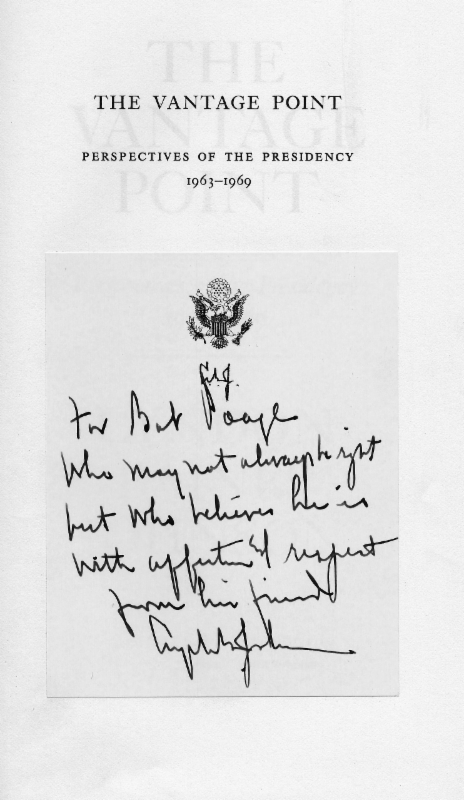 THE VANTAGE POINT
PERSPECTIVES OF THE PRESIDENCY
1963–1969
LBJ.
For Bob Poage
Who may not always be right
but who believes he is
with affection & respect
from his friend
Lyndon B. Johnson